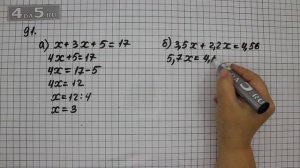 4 5
.RU
91.
а) x + 3x + 5 = 17
4x + 5 = 17
4x = 17 - 5
4x = 12
x = 12 : 4
x = 3
б) 3,5x + 2,2x = 4,56
5,7x = 4,